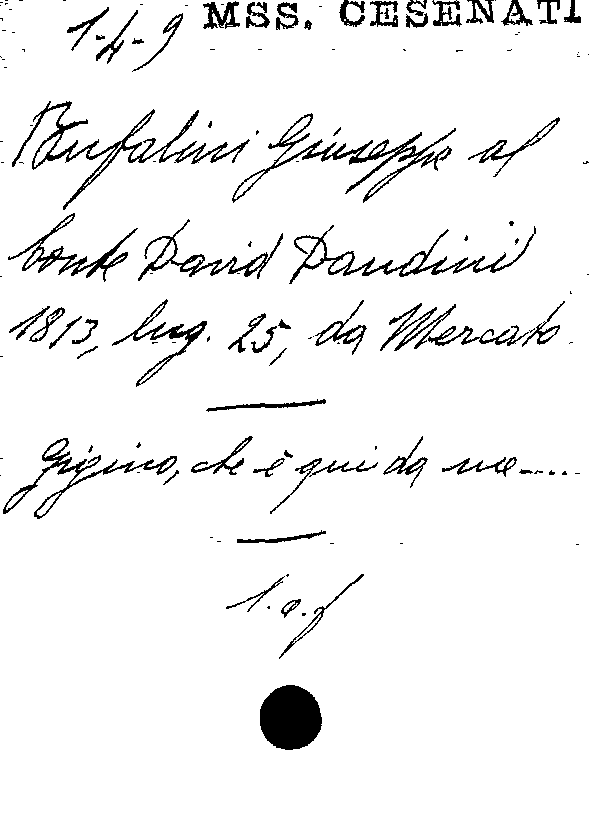 1-4-9 MSS. CESENATI
Bufalini Giuseppe al
Conte David Dandini
1813, lug. 25, da Mercato
Gigino, che è qui da me....
l.a.f